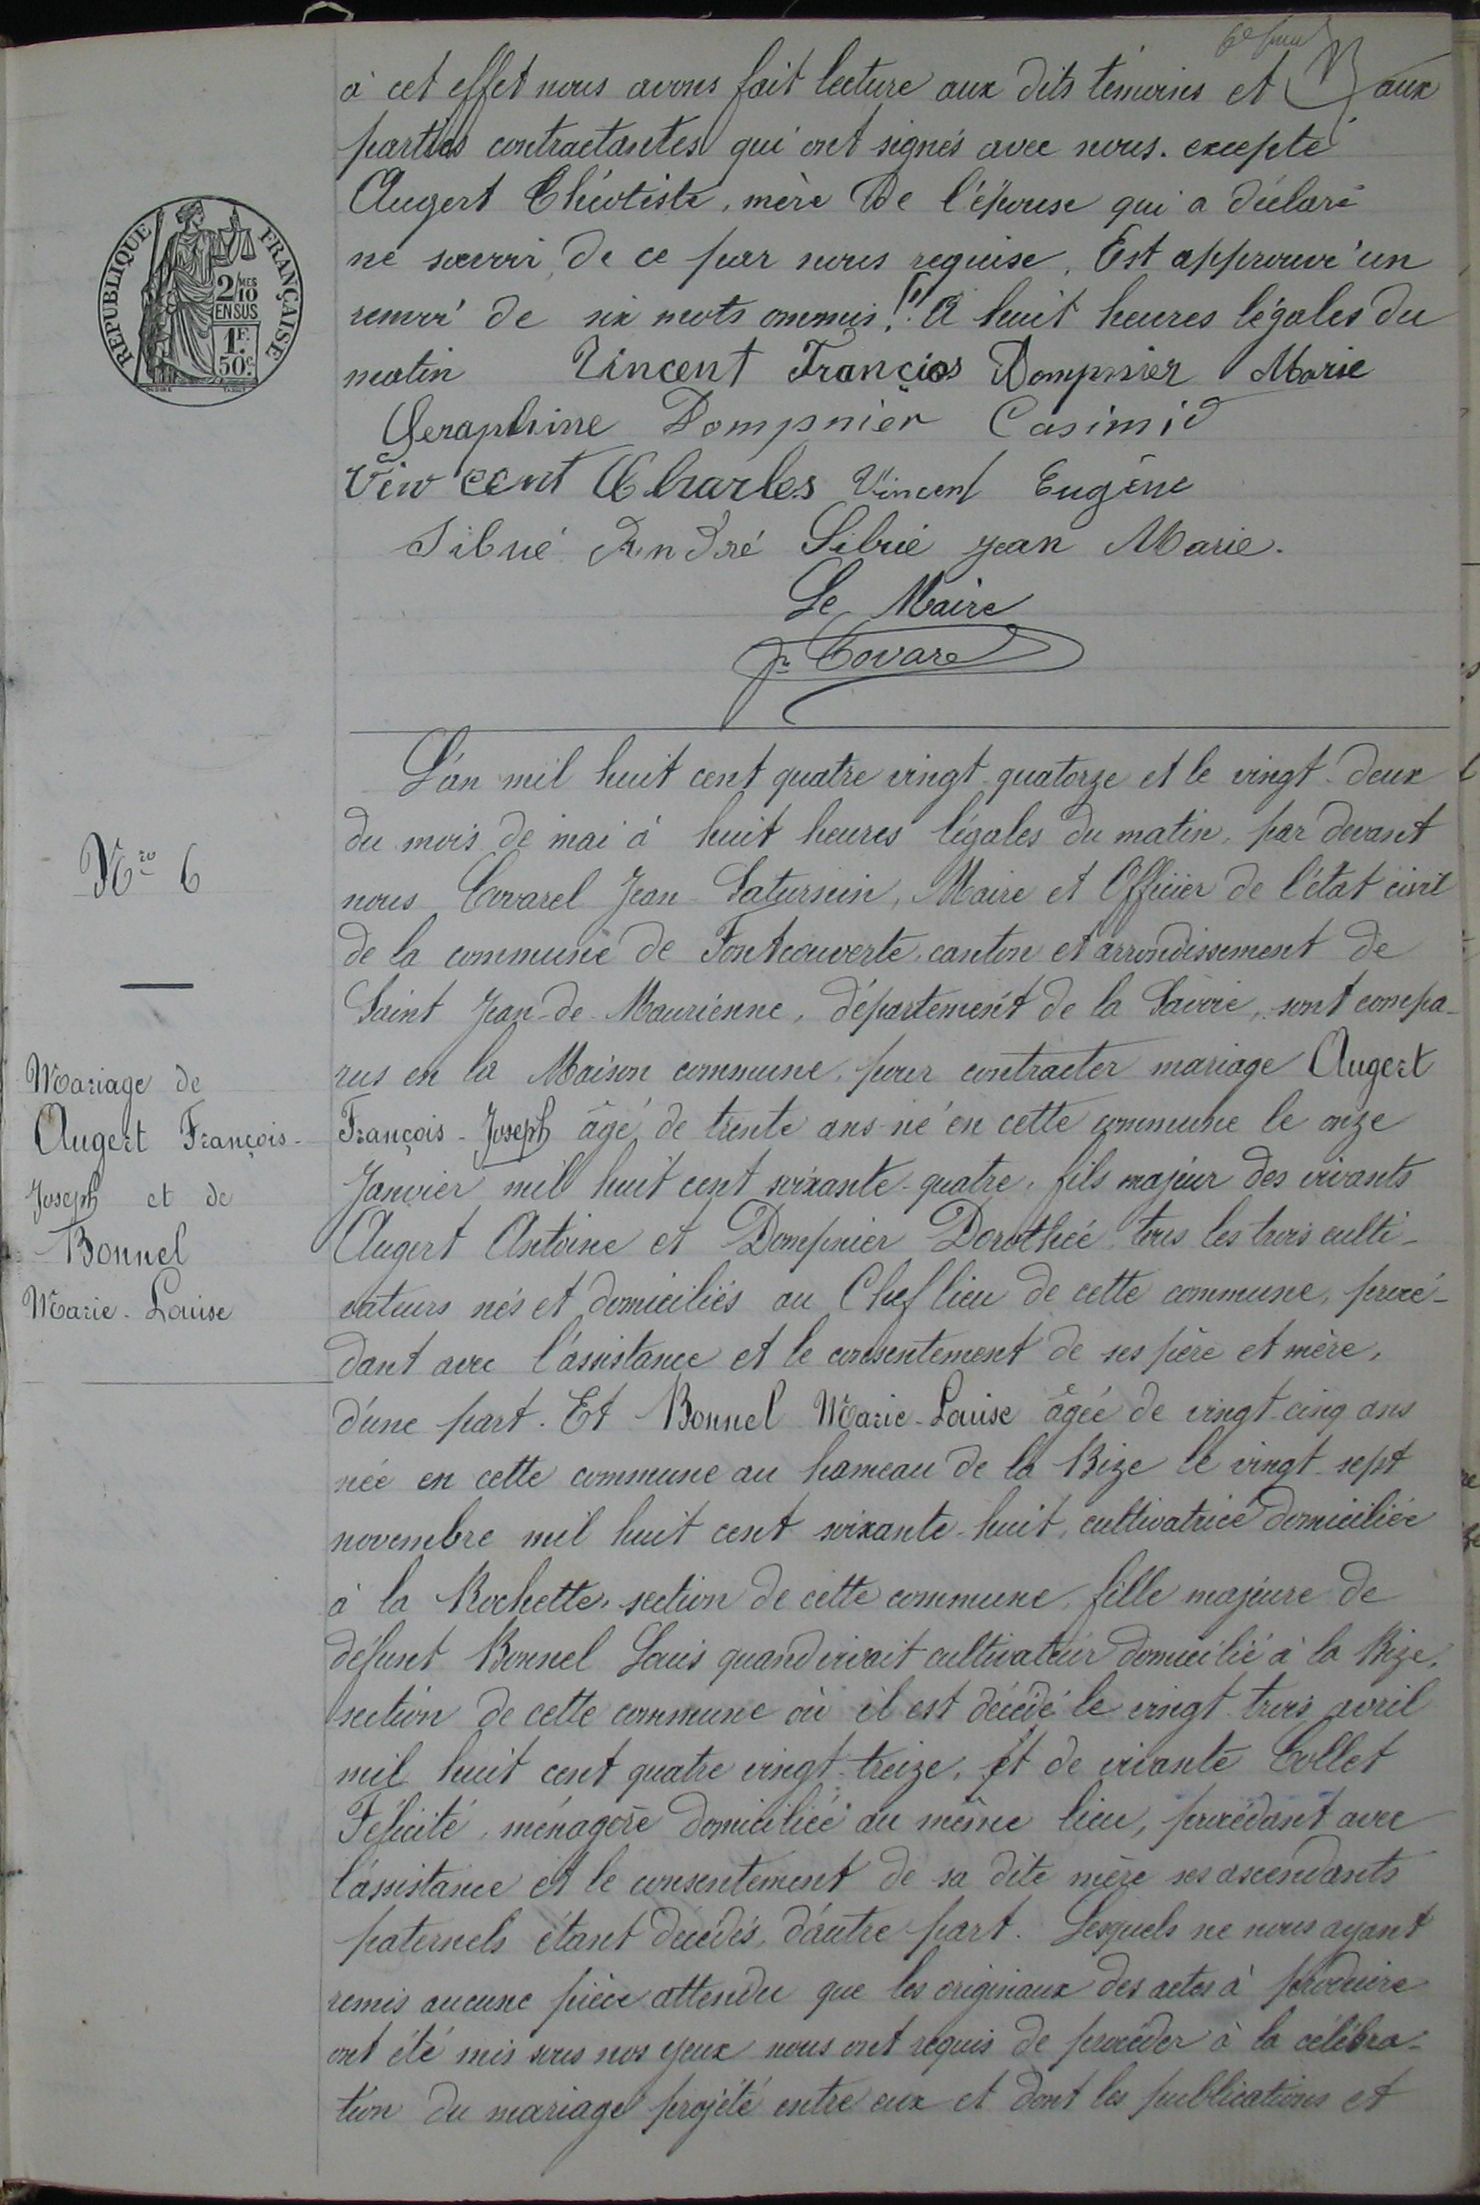 à cet effet nous avons fait lecture aux dits témoins et aux
parties contractantes qui ont signés avec nous. excepté
Augert Théotiste, mère de l'épouse qui a déclaré
ne savoir de ce par nous requise. Est approuvé un
renvoi de six mots ommis. A huit heures légales du
matin Vincent François Dompnier Marie
Seraphine Dompnier Casimir
Vincent Charles Vincent Eugène
Sibué André Sibué Jean Marie.
Le Maire
J. Covarel
RÉPUBLIQUE FRANÇAISE
2/10 MES
EN SUS
1F.
50c.
L'an mil huit cent quatre vingt-quatorze et le vingt-deux
du mois de mai à huit heures légales du matin, par devant
nous Covarel Jean-Saturnin, Maire et Officier de l'état civil
de la commune de Fontcouverte, canton et arrondissement de
Saint Jean-de-Maurienne, département de la Savoie, sont compa-
rus en la Maison commune, pour contracter mariage Augert
François-Joseph âgé de trente ans né en cette commune le onze
Janvier mil huit cent soixante-quatre, fils majeur des vivants
Augert Antoine et Dompnier Dorothée, tous les trois culti-
vateurs nés et domiciliés au Chef lieu de cette commune, procé-
dant avec l'assistance et le consentement de ses père et mère,
d'une part. Et Bonnel Marie-Louise âgée de vingt-cinq ans
née en cette commune au hameau de la Rize le vingt-sept
novembre mil huit cent soixante-huit, cultivatrice domiciliée
à la Rochette, section de cette commune, fille majeure de
défunt Bonnel Louis quand vivait cultivateur domicilié à la Rize,
section de cette commune où il est décédé le vingt-trois avril
mil huit cent quatre vingt-treize, et de vivante Collet
Félicité, ménagère domiciliée au même lieu, procédant avec
l'assistance et le consentement de sa dite mère ses ascendants
paternels étant décédés, d'autre part. Lesquels ne nous ayant
remis aucune pièce attendu que les originaux des actes à produire
ont été mis sous nos yeux nous ont requis de procéder à la célébra-
tion du mariage projeté entre eux et dont les publications et
Nro 6
Mariage de
Augert François-
Joseph et de
Bonnel
Marie-Louise